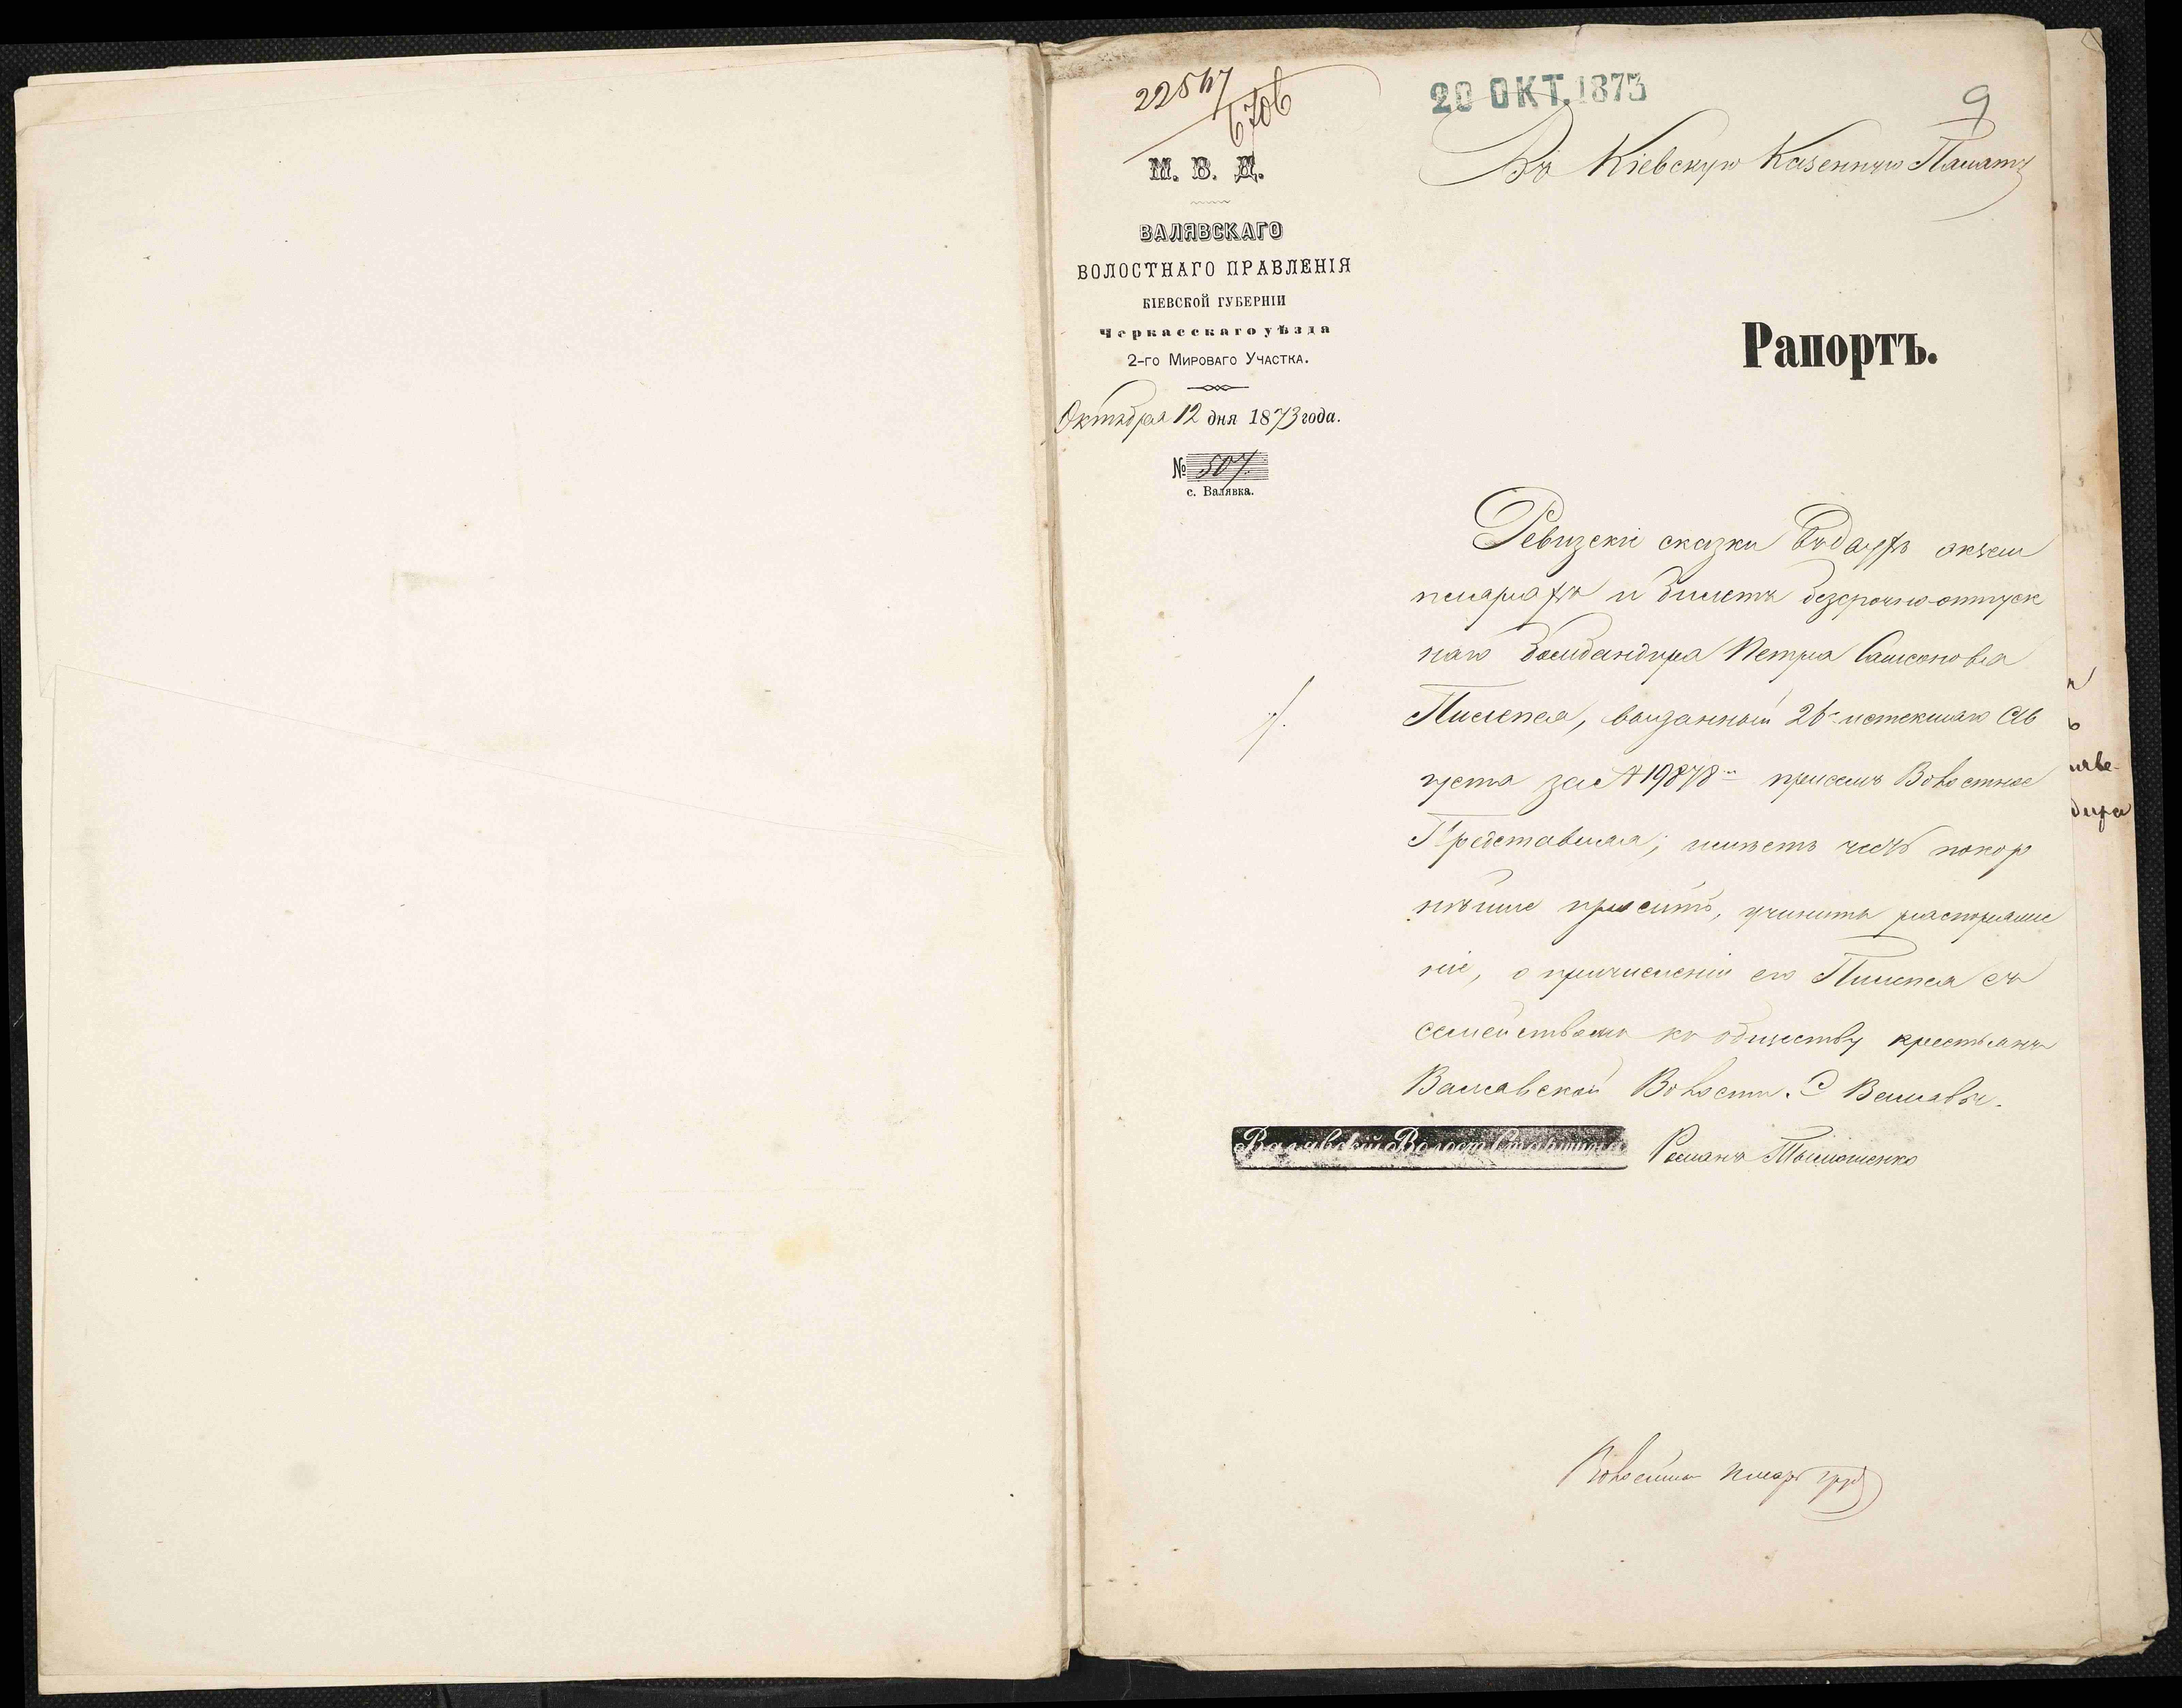 22547
6706
20 ОКТ. 1873
9
М. В. Д.
ВАЛЯВСКАГО
ВОЛОСТНАГО ПРАВЛЕНІЯ
КІЕВСКОЙ ГУБЕРНІИ
Черкасскаго уѣзда
2-го Мироваго Участка.
Октября 12 дня 1873 года.
№ 507.
с. Валявка.
Въ Кіевскую Казенную Палату
Рапортъ.
Ревизскіе сказки въ двухъ экзем
плярахъ и билетъ безсрочно-отпуск
наго бомбандира Петра Самсонова
Пилипея, выданный 26 истекшаго Ав
густа за № 19878 присемъ Волостное
Представляя, имѣетъ честь покор
нѣйше просить, учинить распоряже
ніе, о причисленіи его Пилипея съ
семействомъ къ обществу крестьянъ
Валявской Волости. С Валявы.
Валявскій Волост Старшина Романъ Тимошенко
Волостный писарь